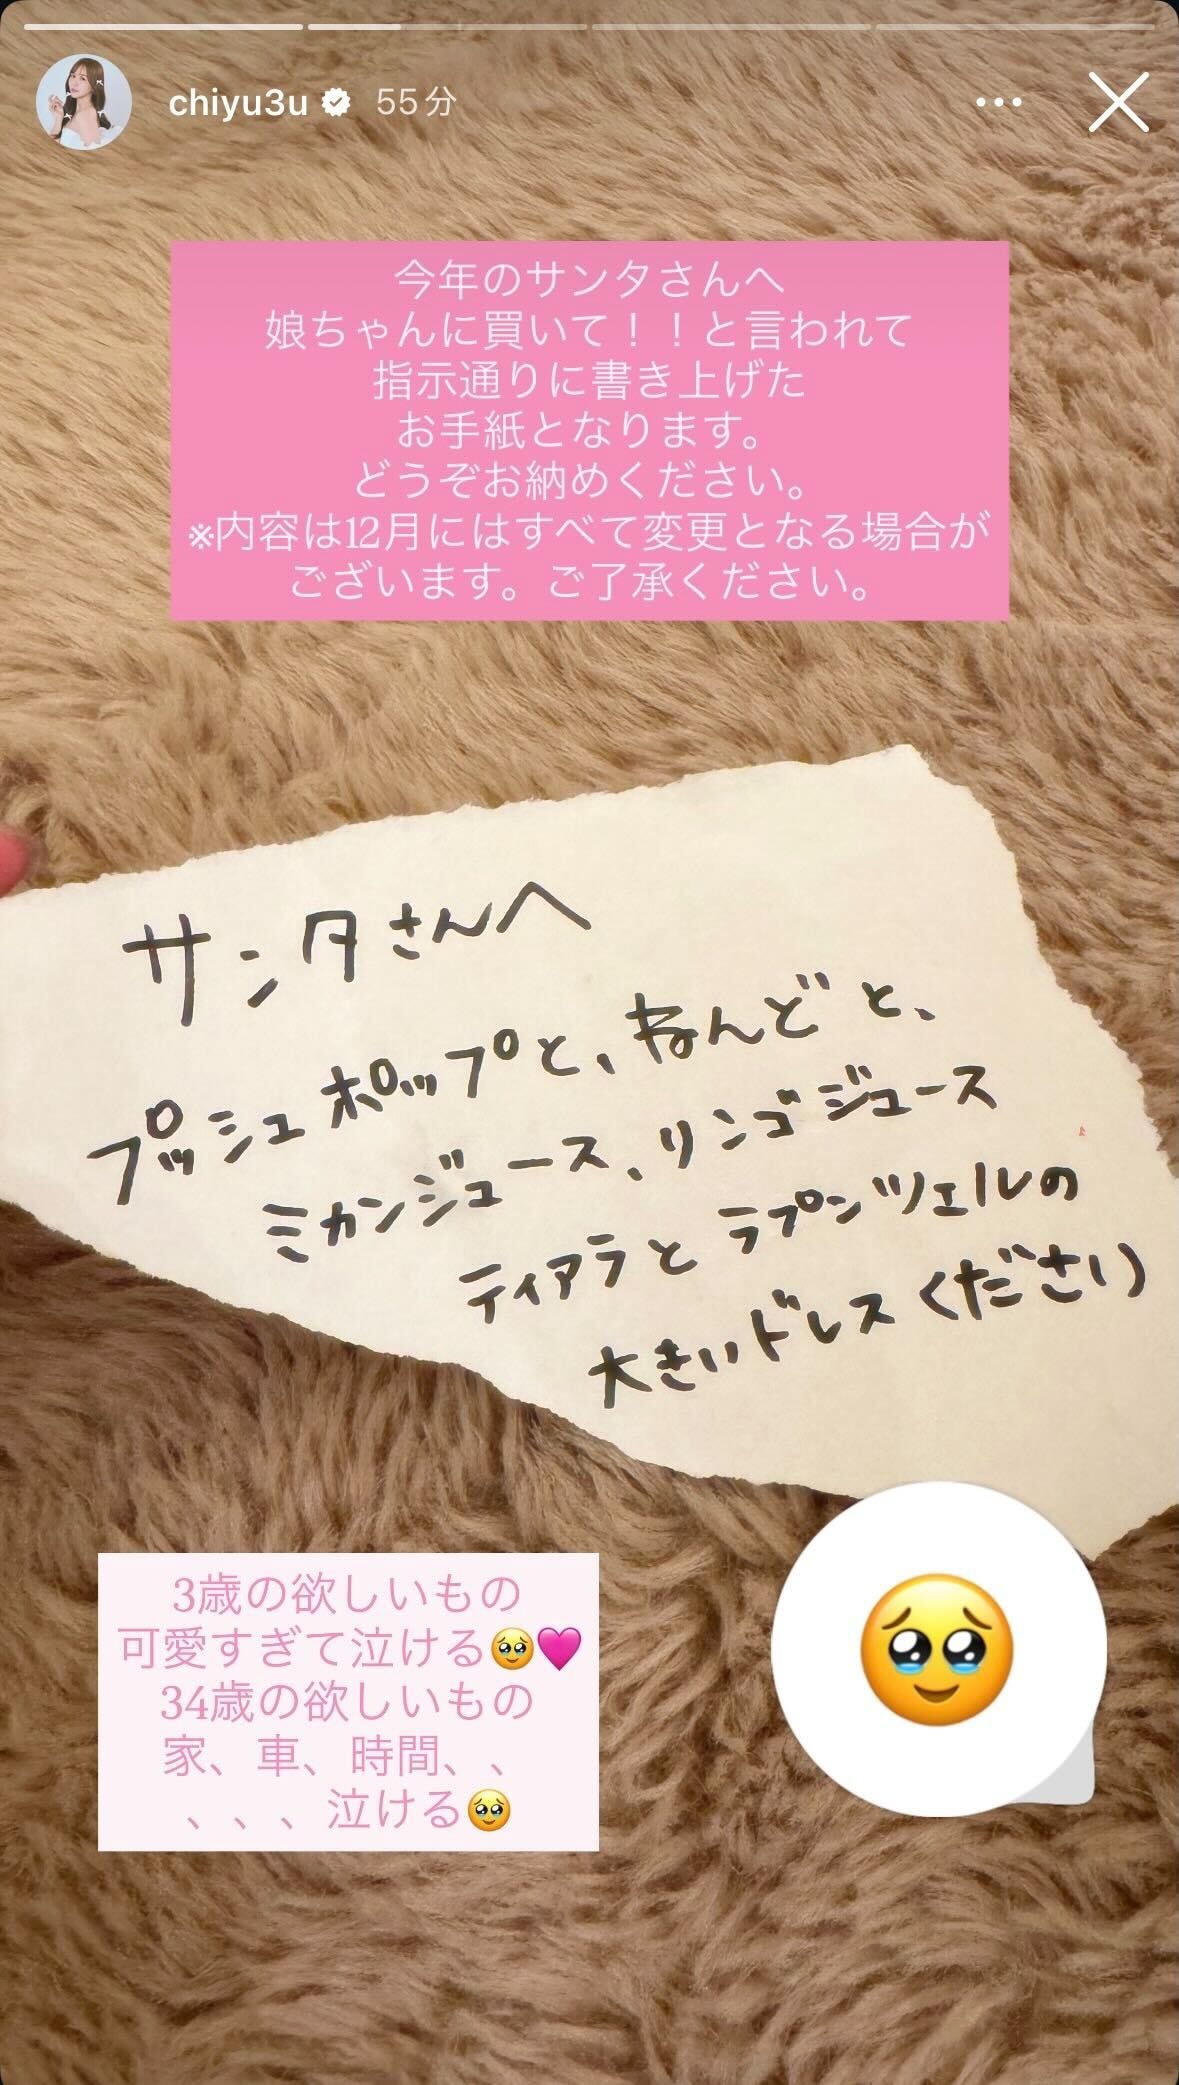 chiyu3u 55分
今年のサンタさんへ
娘ちゃんに買いて！！と言われて
指示通りに書き上げた
お手紙となります。
どうぞお納めください。
※内容は12月にはすべて変更となる場合が
ございます。ご了承ください。
サンタさんへ
プッシュポップと、ねんどと、
ミカンジュース、リンゴジュース
ティアラとラプンツェルの
大きいドレスください
3歳の欲しいもの
可愛すぎて泣ける🥹🩷
34歳の欲しいもの
家、車、時間、、
、、、泣ける🥹
🥹